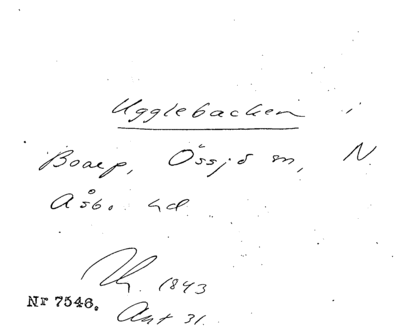 Ugglebacken i
Boarp, Össjö sn, N.
Åsb. hd.
Th. 1843
Nr 7546.
Ant 31.